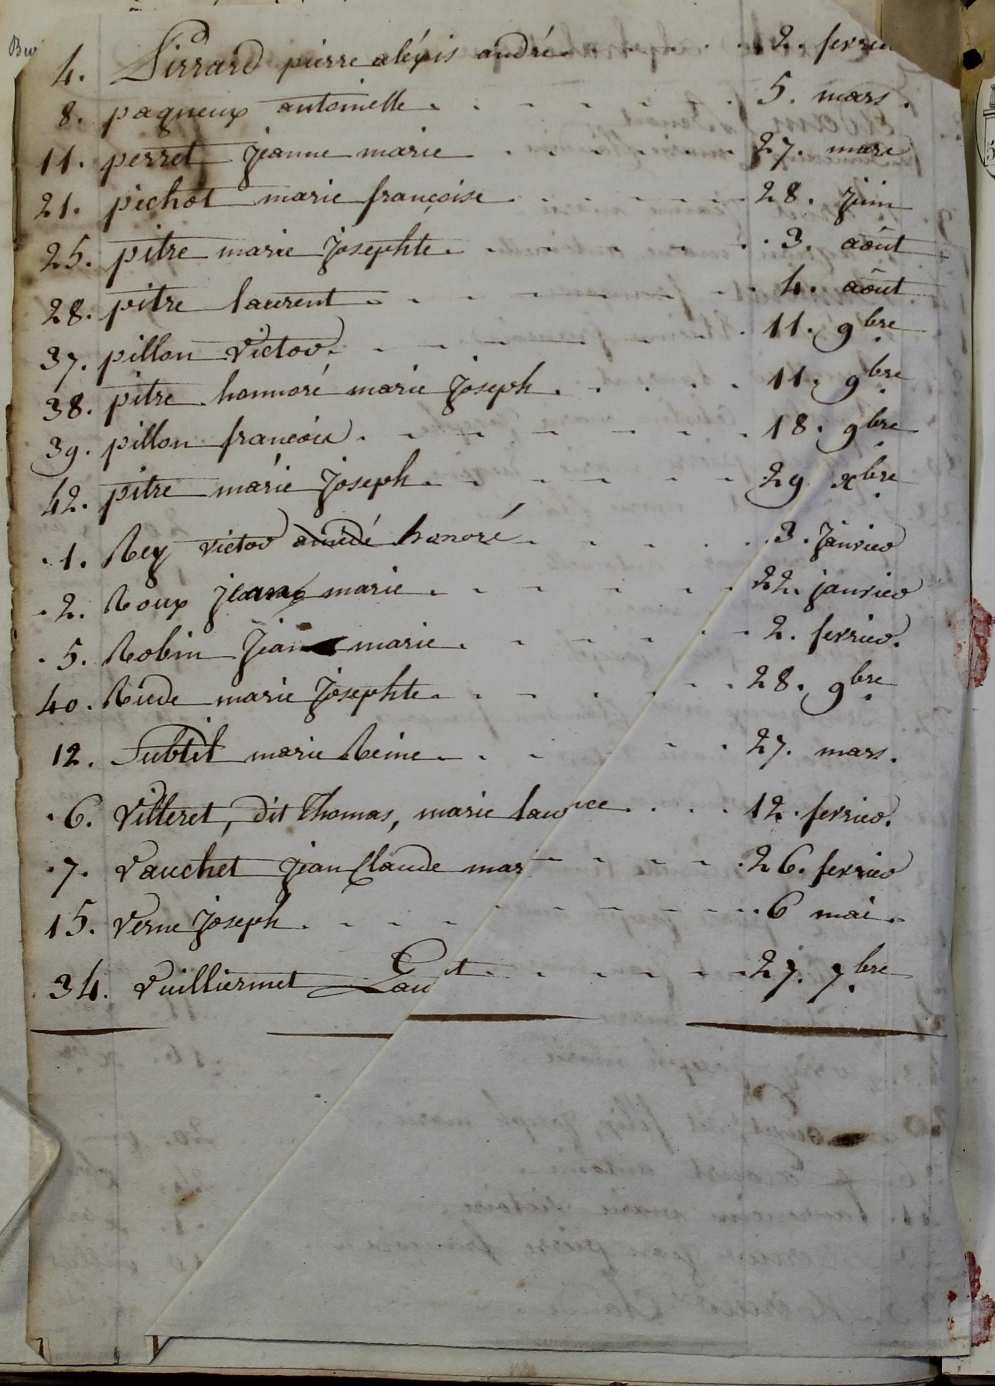 4. Pirrard pierre aléxis andré . . . 2. fevrier
8. pagneux antoinette . . . 5. mars.
11. perret jeanne marie . . . 27. mars
21. pichot marie françoise . . . 28. juin
25. pitre marie josephte . . . 3. août
28. pitre laurent . . . 4. août
37. pillon victor . . . 11. 9bre
38. pitre honnoré marie joseph . . . 11. 9bre
39. pillon françois . . . 18. 9bre
42. pitre marie joseph . . . 29 xbre
1. Rey victor honoré . . . 3. janvier
2. Roux jean marie . . . 22. janvier
5. Robin jean marie . . . 2. fevrier.
40. Rude marie josephte . . . 28. 9bre
12. Subtil marie Reine . . . 27. mars.
6. Villeret, dit Thomas, marie laurence . . . 12. fevrier.
7. Vauchet jean Claude mar . . . 26. fevrier
15. Verne joseph . . . 6 mai.
34. Vuilliermet Lau t . . . 27. 7bre